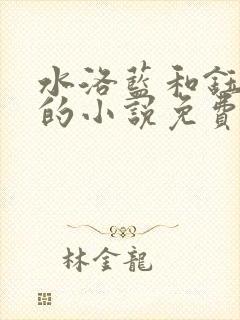 水洛藍和鈺
的小說免費
林金龍